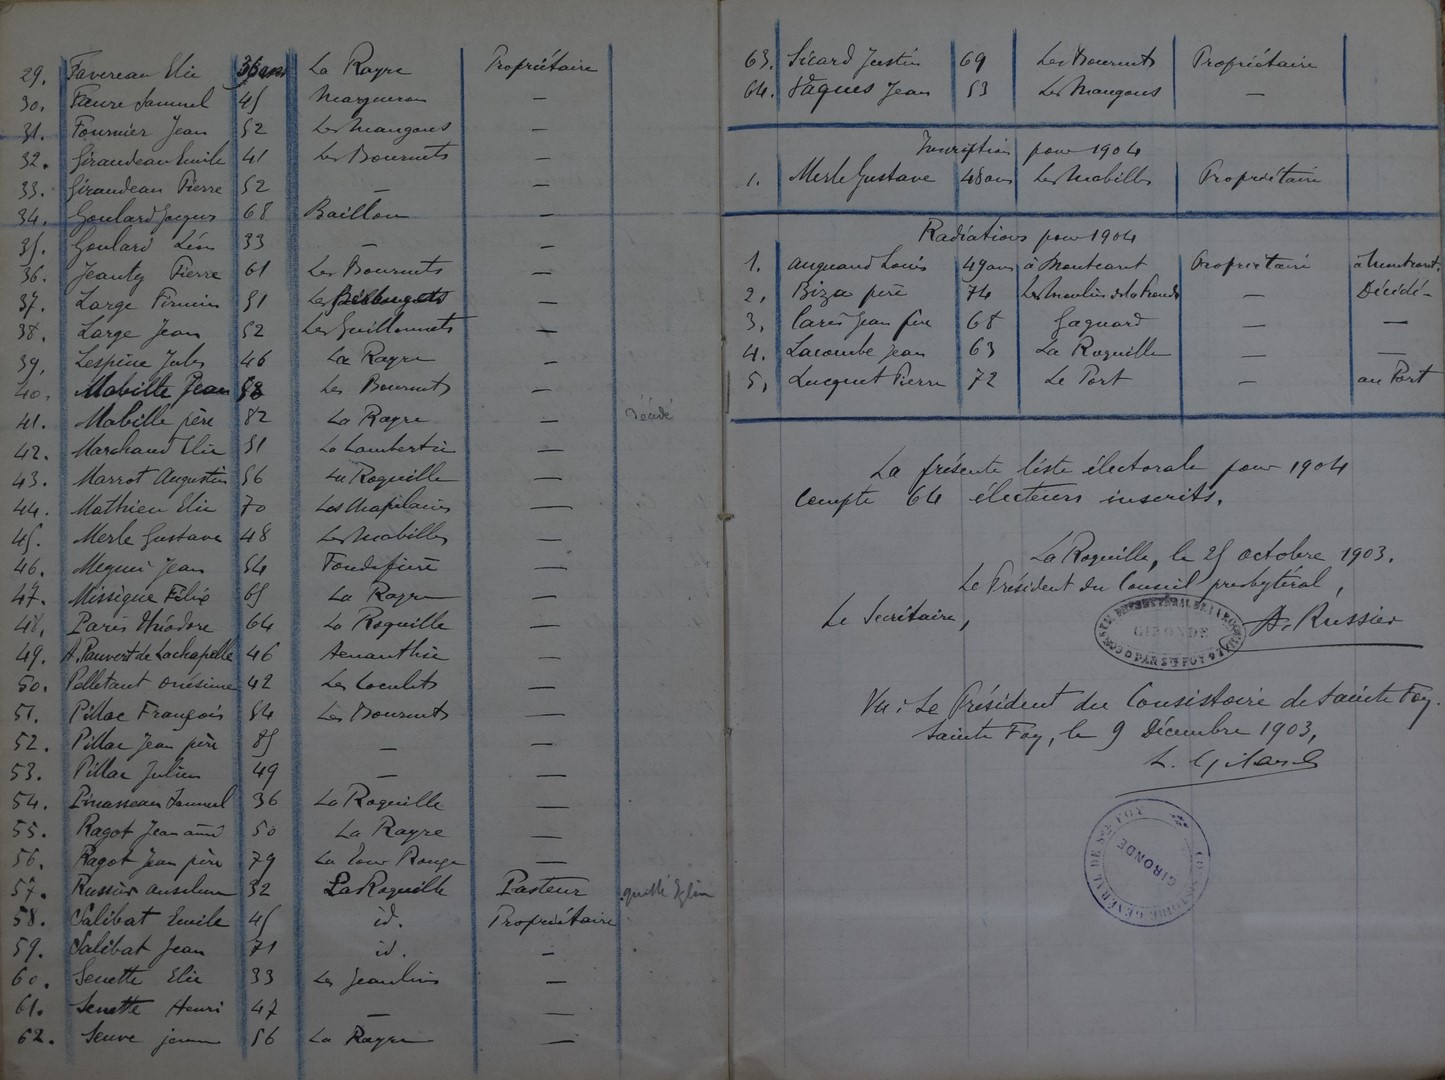 29. Favereau Elie 36 ans La Rayre Propriétaire
30. Faure Samuel 45 Margueron —
31. Fournier Jean 52 Les Mangons —
32. Girandeau Emile 41 Les Bournets —
33. Girandeau Pierre 52 — —
34. Goulard Jacques 68 Baillon —
35. Goulard Léon 33 — —
36. Jeanty Pierre 61 Les Bournets —
37. Large Firmin 51 Les —
38. Large Jean 52 Les Guillonnets —
39. Lespine Jules 46 La Rayre —
40. Mabille Jean Les Bournets —
41. Mabille père 82 La Rayre — Décédé
42. Marchand Elie 51 La Lambertie —
43. Marrot Augustin 56 La Roquille —
44. Mathieu Elie 70 —
45. Merle Gustave 48 Les Mabilles —
46. Jean 54 —
47. Missigue Félix 65 La Rayre —
48. Paris Théodore 64 La Roquille —
49. A. Pauvert de Lachapelle 46 —
50. Pelletant Onésime 42 Les —
51. Pillac François 54 Les Bournets —
52. Pillac Jean père 85 — —
53. Pillac Julien 49 — —
54. Pinasseau Samuel 36 La Roquille —
55. Ragot Jean aîné 50 La Rayre —
56. Ragot Jean père 79 La Tour Rouge —
57. Russier Anselme 32 La Roquille Pasteur quitté Eglise
58. Salibat Emile 45 id. Propriétaire
59. Salibat Jean 71 id. —
60. Senette Elie 33 Les Jeaulins —
61. Senette Henri 47 — —
62. Seuve 56 La Rayre —
63. Sicard Justin 69 Les Bournets Propriétaire
64. Vâques Jean 53 Les Mangons —
Inscription pour 1904
1. Merle Gustave 48 ans Les Mabilles Propriétaire
Radiations pour 1904
1. Louis 49 ans à Montcaret Propriétaire à Montcaret.
2. Biza père 74 Les Moulins de la Décédé —
3. Jean père 68 Gagnard — —
4. Lacombe Jean 63 La Roquille — —
5. Lucquet Pierre 72 Le Port — au Port
La présente liste électorale pour 1904
compte 64 électeurs inscrits.
La Roquille, le 25 octobre 1903.
Le Président du Conseil presbytéral,
Le Secrétaire,
GIRONDE
A. Russier
Vu : Le Président du Consistoire de Sainte Foy.
Sainte Foy, le 9 Décembre 1903.
GÉNÉRAL DE STE FOY
GIRONDE